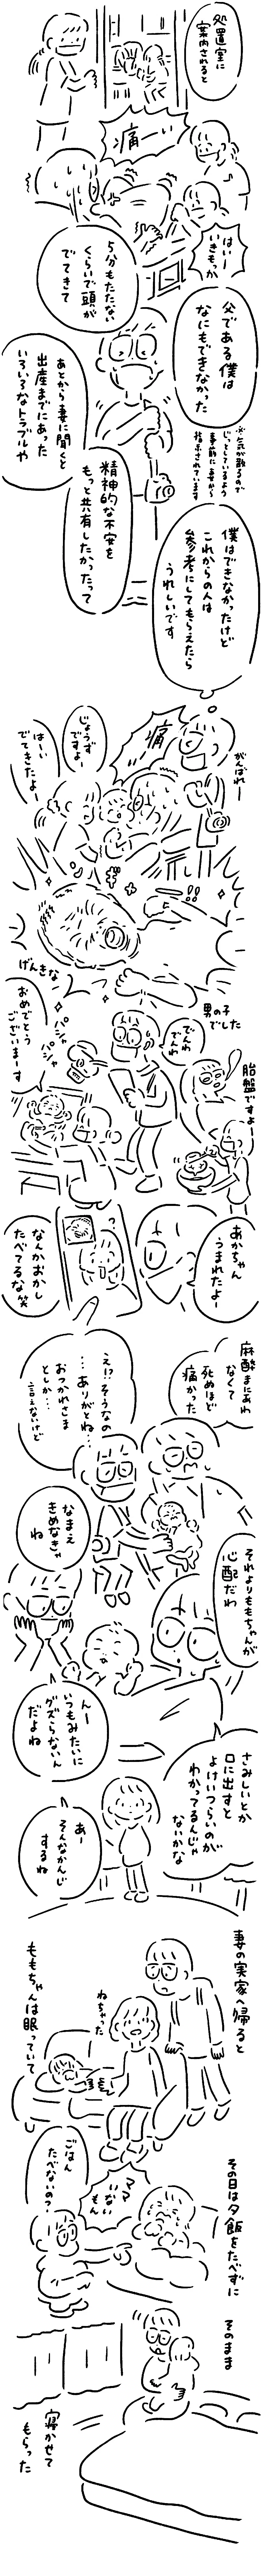 処置室に
案内されると
痛ーい
はいー
いきもっか
5分もたたない
くらいで頭が
でてきて
父である僕は
なにもできなかった
※気が散るので
じっとしているよう
事前に妻から
指示されています
あとから妻に聞くと
出産までにあった
いろいろなトラブルや
精神的な不安を
もっと共有したかったって
僕はできなかったけど
これからの人は
参考にしてもらえたら
うれしいです
がんばれー
痛
じょうず
ですよー
はーい
でてきたよー
ンギャ
!!
げんきな
男の子
でした
おめでとう
ございまーす
パシャ
パシャ
でんわ
でんわ
胎盤ですよー
あかちゃん
うまれたよー
なんかおかし
たべてるな笑
麻酔まにあわ
なくて
死ぬほど
痛かった
え!?そうなの
…ありがとね…
おつかれさま
としか…
言えないけど
なまえ
きめなきゃ
ね
それよりももちゃんが
心配だわ
んー
いつもみたいに
グズらないん
だよね
さみしいとか
口に出すと
よけいつらいのが
わかってるんじゃ
ないかな
あー
そんなかんじ
するね
妻の実家へ帰ると
ねちゃった
ももちゃんは眠っていて
ママ
いない
もん
ごはん
たべないの?
その日は夕飯をたべずに
そのまま
寝かせて
もらった